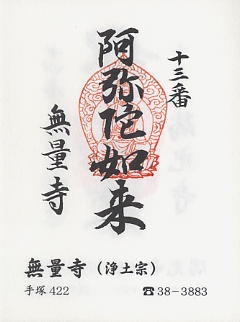 十三番
阿弥陀如来
無量寺
無量寺（浄土宗）
手塚422 ☎38-3883